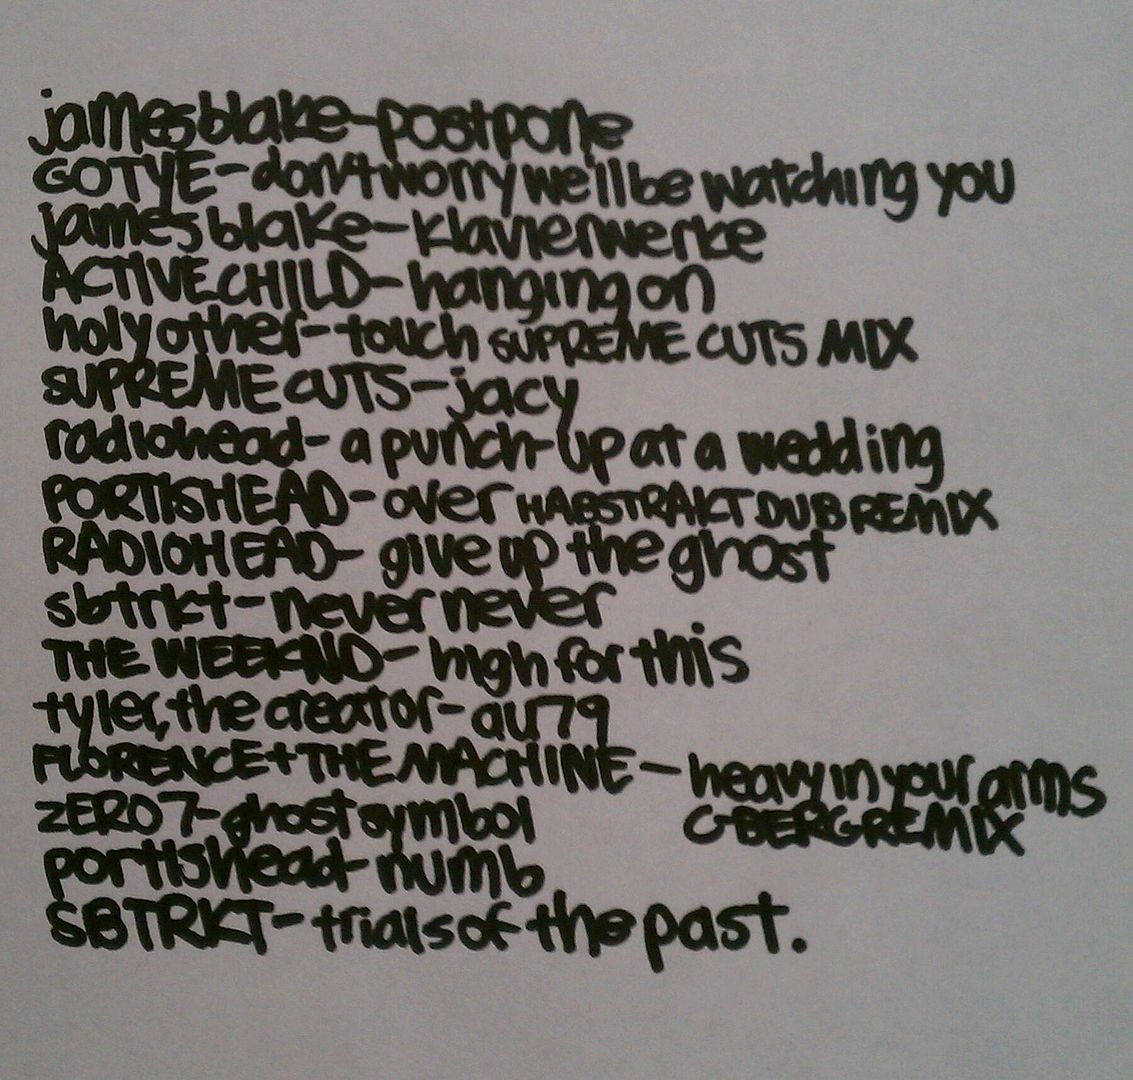 james blake-postpone
GOTYE-don't worry we'll be watching you
james blake-klavierwerke
ACTIVE CHILD-hanging on
holy other-touch SUPREME CUTS MIX
SUPREME CUTS-jacy
radiohead-a punch-up at a wedding
PORTISHEAD-over HABSTRAKT DUB REMIX
RADIOHEAD-give up the ghost
sbtrkt-never never
THE WEEKND-high for this
tyler, the creator-au79
FLORENCE+THE MACHINE-heavy in your arms
C-BERG REMIX
ZERO 7-ghost symbol
portishead-numb
SBTRKT-trials of the past.